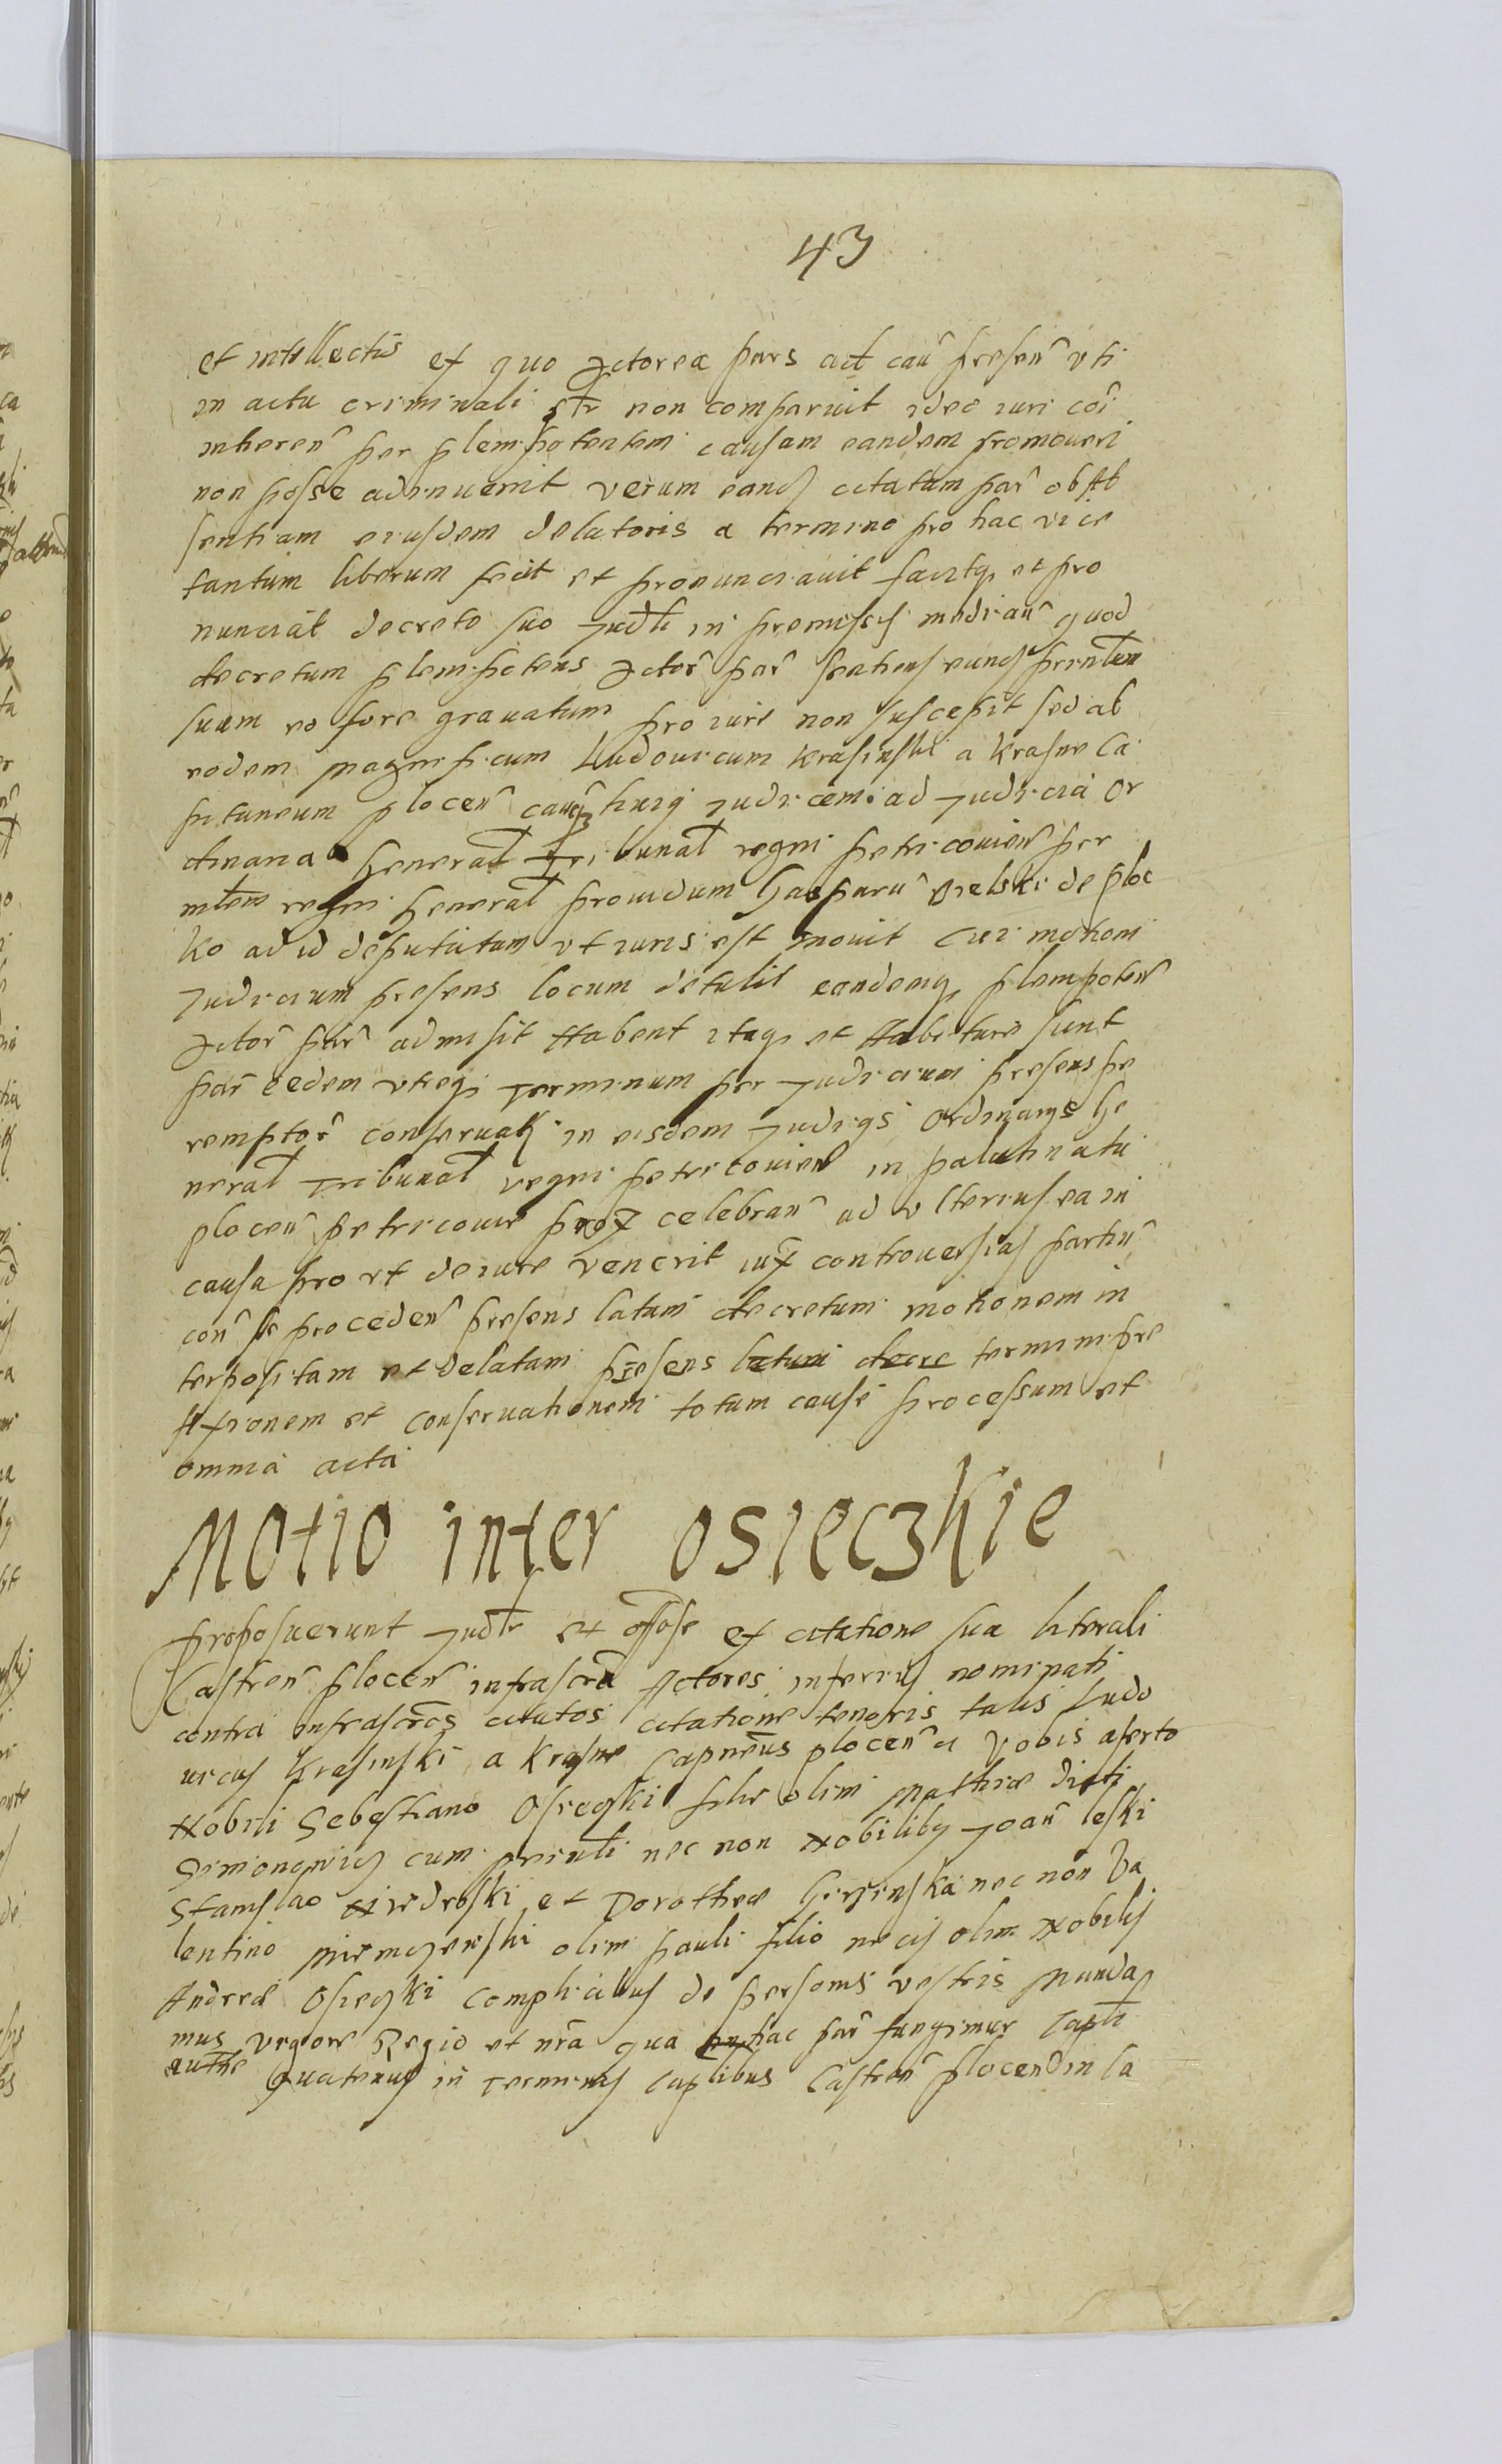 43
et intellectis ex quo Actorea pars ad cau͂ presen͂ uti
in actu criminali non comparuit ideo iuri coi͂
inheren͂ per plenipotentem causam eandem promoveri
non posse adinuenit verum eandem citatam par͂ ob Ab
sentiam eiusdem delatoris a termino pro hac vice
tantum liberum fecit et pronunciavit facitq et pro
nunciat decreto suo Judli in premissis median͂ quod
decretum plenipotens Actor͂ par͂ sentiens eundem prinlem
suum eo fore gravatum pro iure non suscepit sed ab
eodem Magnificum Ludovicum Krasinski a Krasne Ca
pitaneum plocen͂ huig Judicem ad Judicia Or
dinaria General Tribunal regni petricovien͂ per
mlem regni General providum Gasparu͂ Bielski de ploc
ko ad id deputatum ut iuris est movit Cui motioni
Judicium presens locum detulit eandemq plenipoten͂
Actor͂ par͂ admisit Habent itaq et Habiture sunt
par͂ eedem utreq Terminum per Judicium presens pe
remptor͂ conservatum in eisdem Judiciis Ordinariis Ge
neral Tribunal regni petricovien͂ in palatinatu
plocen͂ petricovie prox celebran͂ ad ulterius ea in
causa pro ut de iure venerit iux controversias partiu͂
con͂ se proceden͂ presens latum decretum motionem in
terpositam et delatam presens latum decre termini pre
fixionem et conservationem totum cause processum et
omnia acta
Motio inter Osieczkie
Proposuerunt Judlr et offose ex citatione sua literali
Castren͂ plocen͂ infrascra Actores inferius nominati
contra infrascros citatos citatione tenoris talis Ludo
vicus Krasinski a Krasne Capneus plocen͂ Vobis
Nobili Sebestiano Osieczki filio olim Mathie Dicti
Simonowicz cum prinli nec non Nobilibq Joan͂ leski
Stanislao et Dorothee nec non Va
lentino olim pauli filio necis olim Nobilis
Andree Osieczki complicibus de personis vestris Manda
mus vigore Regio et nra qua hac par͂ fungimur Capli
authe Quatenus in Terminis Caplibus Castren͂ plocen͂ in Ca